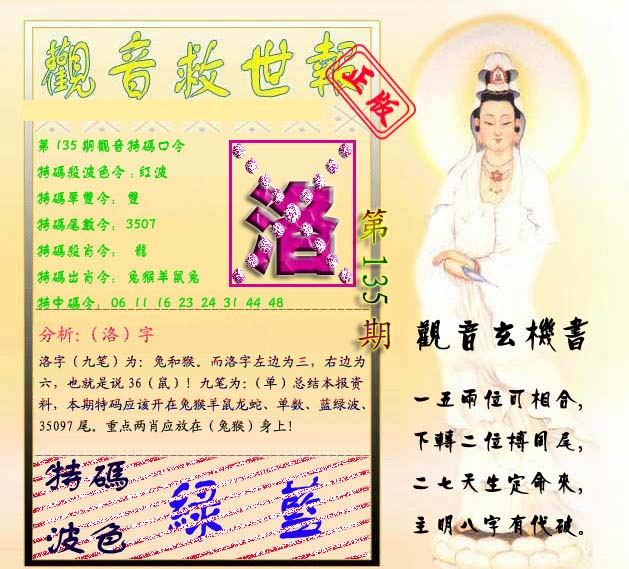 觀音救世報
正版
第135期觀音特碼口令
特碼殺波色令:紅波
特碼單雙令: 雙
特碼尾數令: 3507
特碼殺肖令: 龍
特碼出肖令: 兔猴羊鼠兔
特中碼令: 06 11 16 23 24 31 44 48
洛
第135期
分析:(洛)字
洛字（九笔）为：兔和猴。而洛字左边为三，右边为
六，也就是说36（鼠）！九笔为：（单）总结本报资
料，本期特码应该开在兔猴羊鼠龙蛇、单数、蓝绿波、
35097尾。重点两肖应放在（兔猴）身上！
特碼
波色
綠 藍
觀音玄機書
一五兩位可相合，
下轉二位搏同尾，
二七天生定命來，
主明八字有代破。